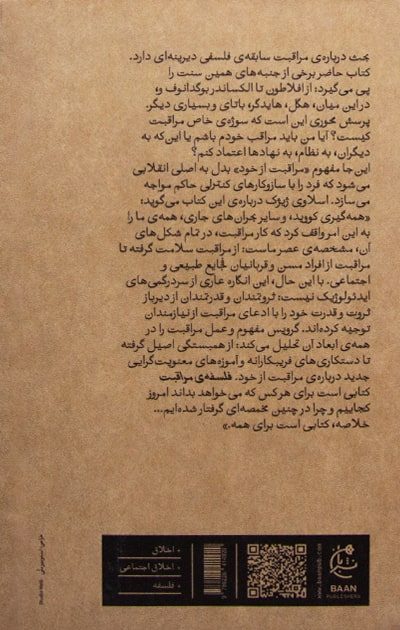 بحث درباره‌ی مراقبت سابقه‌ی فلسفی دیرینه‌ای دارد.
کتاب حاضر برخی از جنبه‌های همین سنت را
پی می‌گیرد: از افلاطون تا الکساندر بوگدانوف و،
در این میان، هگل، هایدگر، باتای و بسیاری دیگر.
پرسش محوری این است که سوژه‌ی خاص مراقبت
کیست؟ آیا من باید مراقب خودم باشم یا این‌که به
دیگران، به نظام، به نهادها اعتماد کنم؟
این‌جا مفهوم «مراقبت از خود» بدل به اصلی انقلابی
می‌شود که فرد را با سازوکارهای کنترلی حاکم مواجه
می‌سازد. اسلاوی ژیژک درباره‌ی این کتاب می‌گوید:
«همه‌گیری کووید، و سایر بحران‌های جاری، همه‌ی ما را
به این امر واقف کرد که کار مراقبت، در تمام شکل‌های
آن، مشخصه‌ی عصر ماست: از مراقبت سلامت گرفته تا
مراقبت از افراد مسن و قربانیان فجایع طبیعی و
اجتماعی. با این حال، این انگاره عاری از سردرگمی‌های
ایدئولوژیک نیست: ثروتمندان و قدرتمندان از دیرباز
ثروت و قدرت خود را با ادعای مراقبت از نیازمندان
توجیه کرده‌اند. گرویس مفهوم و عمل مراقبت را در
همه‌ی ابعاد آن تحلیل می‌کند: از همبستگی اصیل گرفته
تا دستکاری‌های فریبکارانه و آموزه‌های معنویت‌گرایی
جدید درباره‌ی مراقبت از خود. فلسفه‌ی مراقبت
کتابی است برای هر کس که می‌خواهد بداند امروز
کجاییم و چرا در چنین مخمصه‌ای گرفتار شده‌ایم...
خلاصه، کتابی است برای همه.»
• اخلاق
• اخلاق اجتماعی
• فلسفه
www.baanpub.com
نشر بان
BAAN
PUBLISHERS